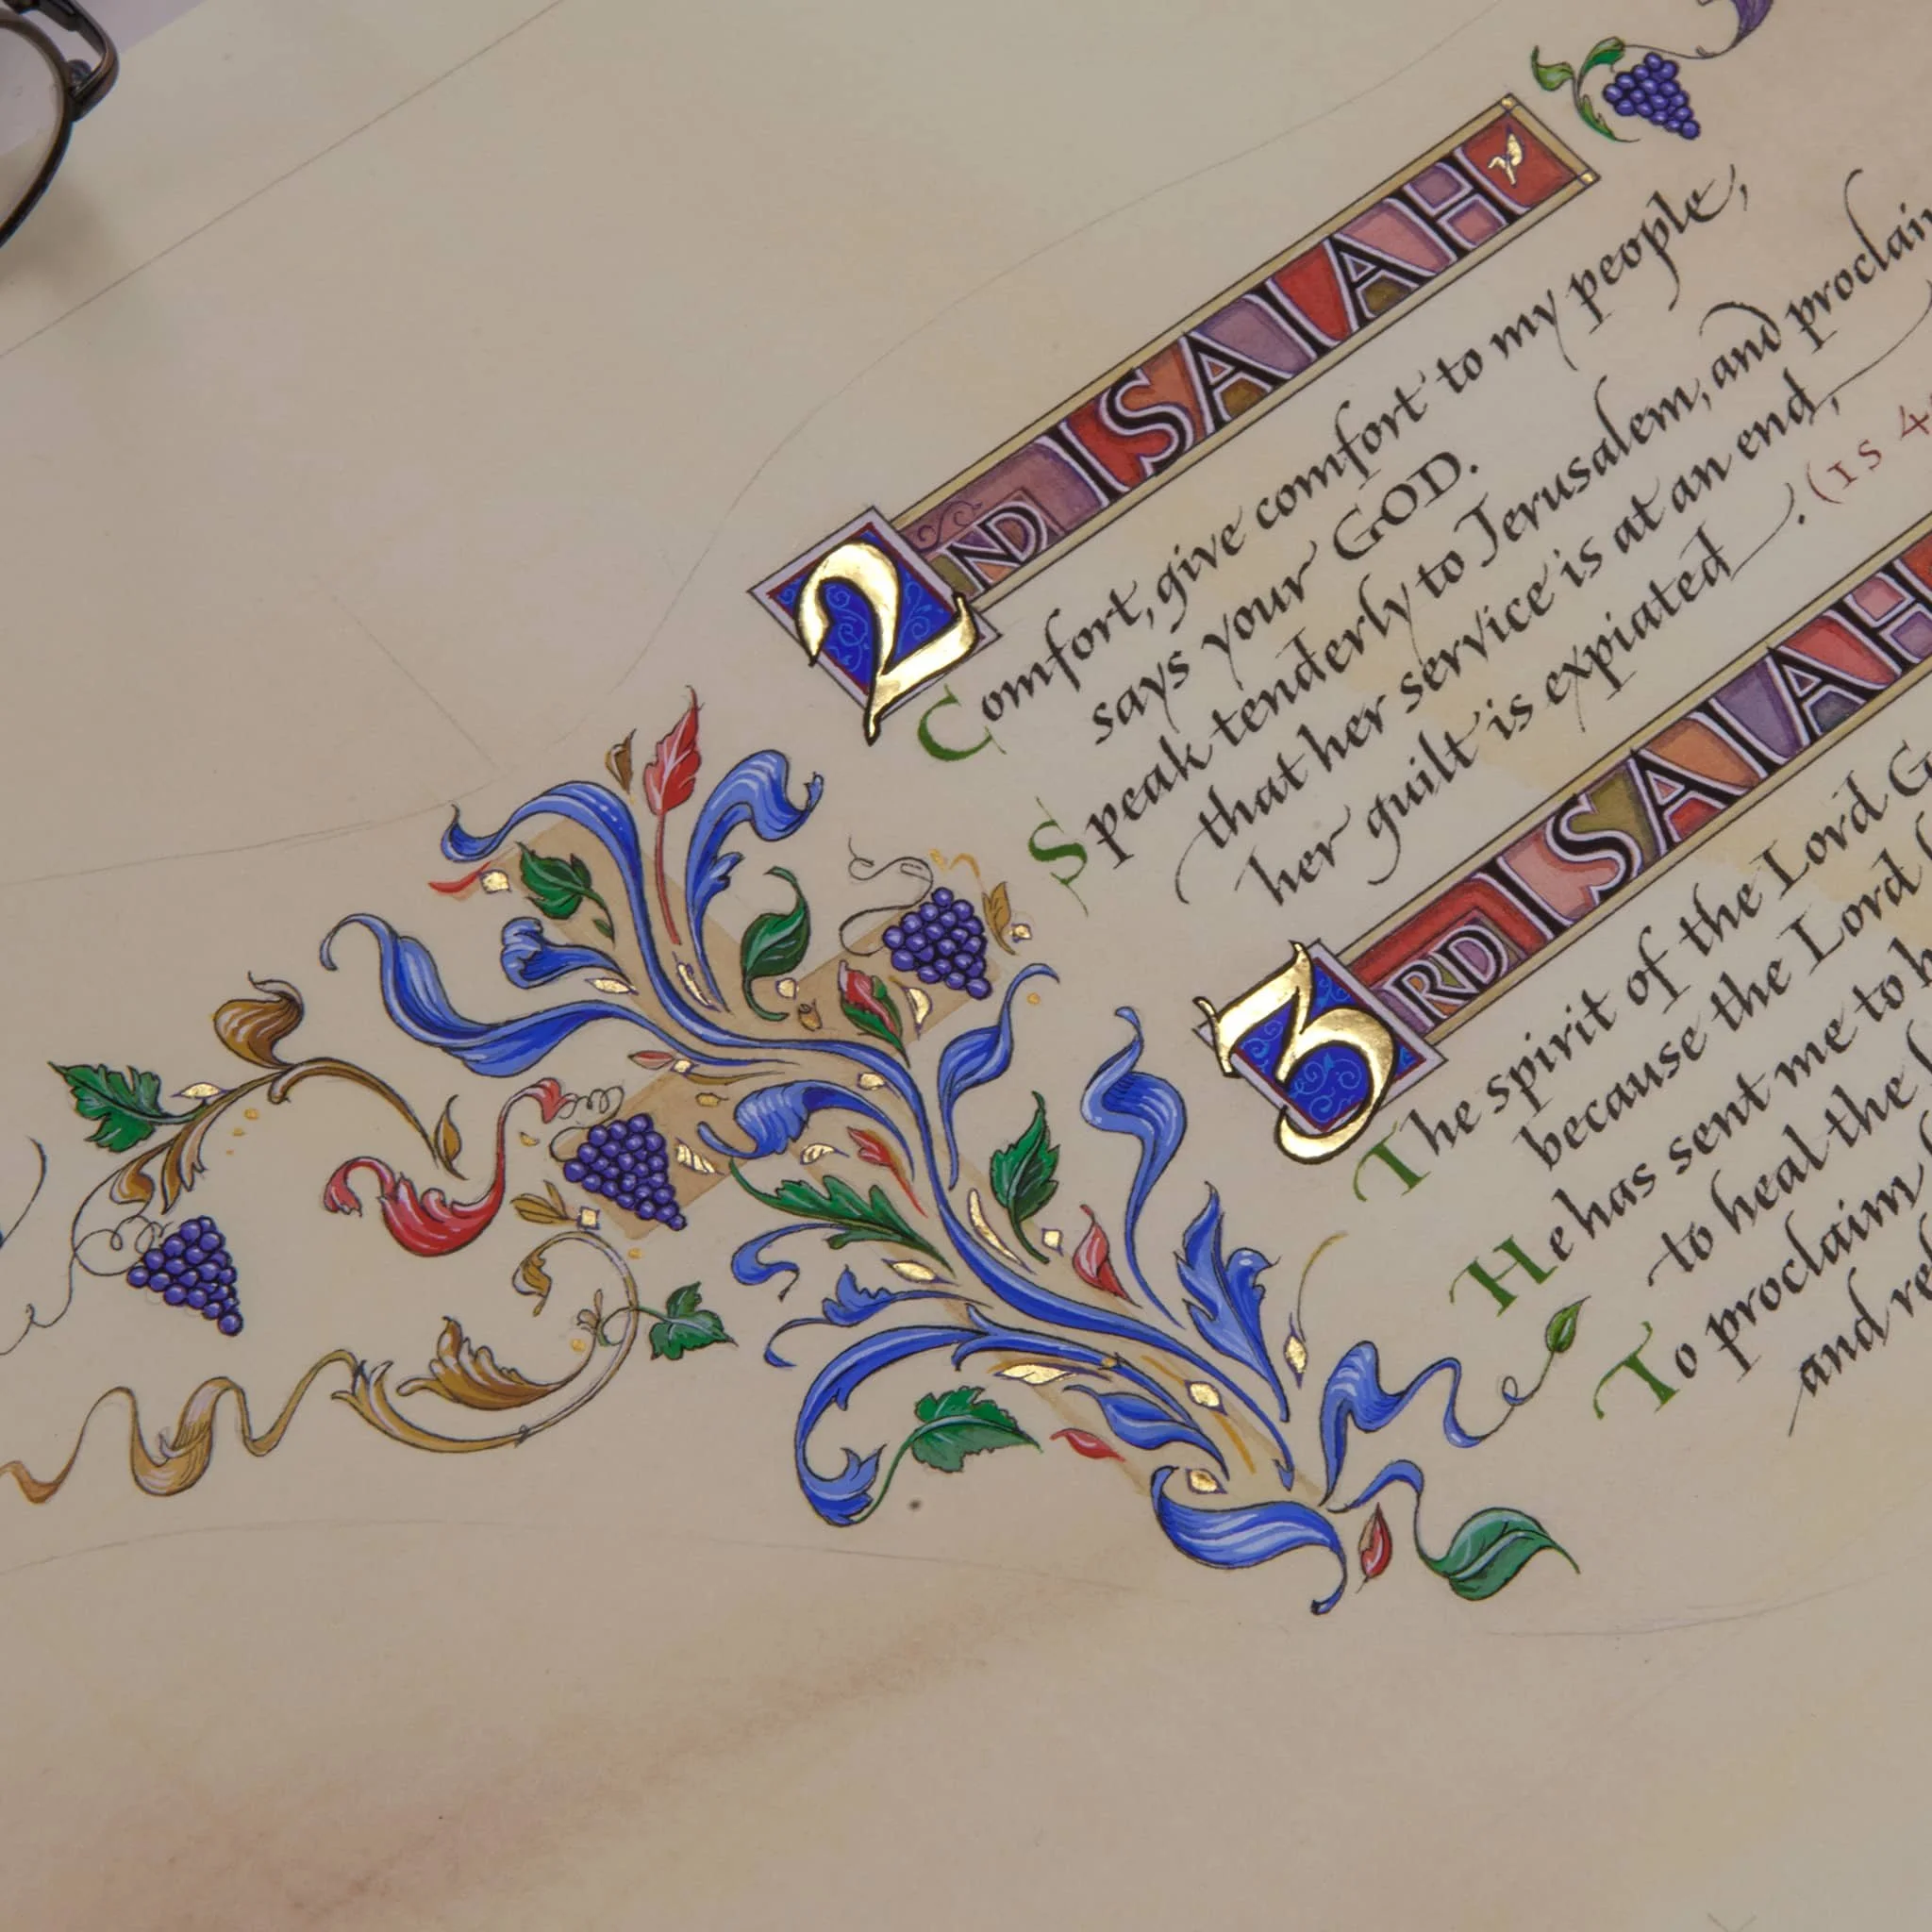 2ND ISAIAH
Comfort, give comfort to my people,
says your GOD.
Speak tenderly to Jerusalem, and proclaim
that her service is at an end,
her guilt is expiated. (IS 4
3RD ISAIAH
The spirit of the Lord G
because the Lord
He has sent me to
to heal the
To proclaim
and